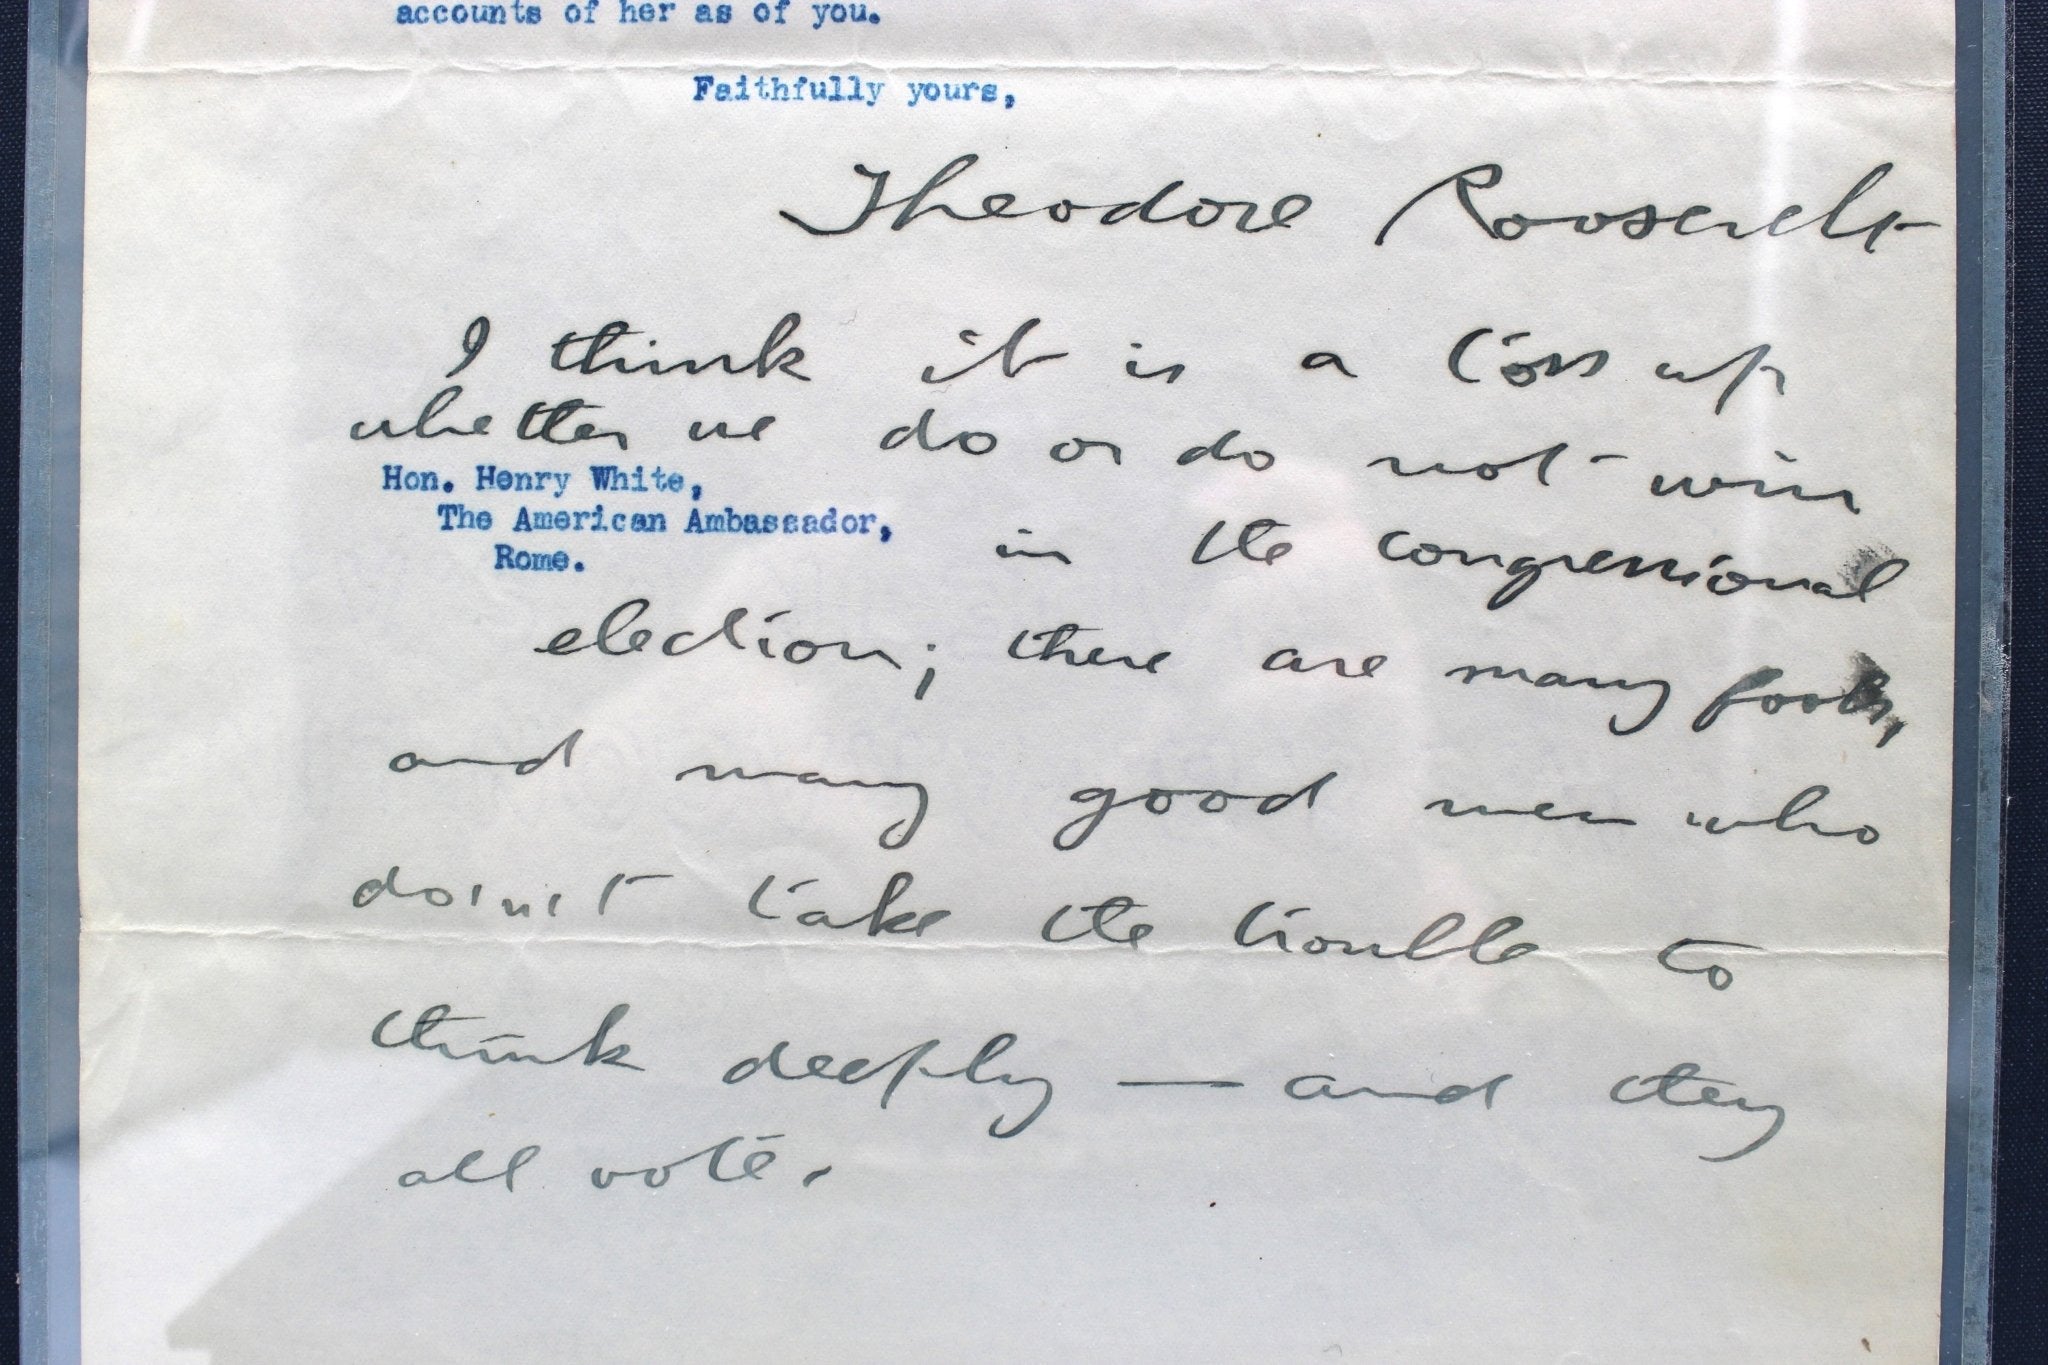 accounts of her as of you.
Faithfully yours,
Theodore Roosevelt
I think it is a toss up
whether we do or do not win
Hon. Henry White,
The American Ambassador,
Rome.
in the congressional
election; there are many fools,
and many good men who
do'n't take the trouble to
think deeply — and they
all vote.